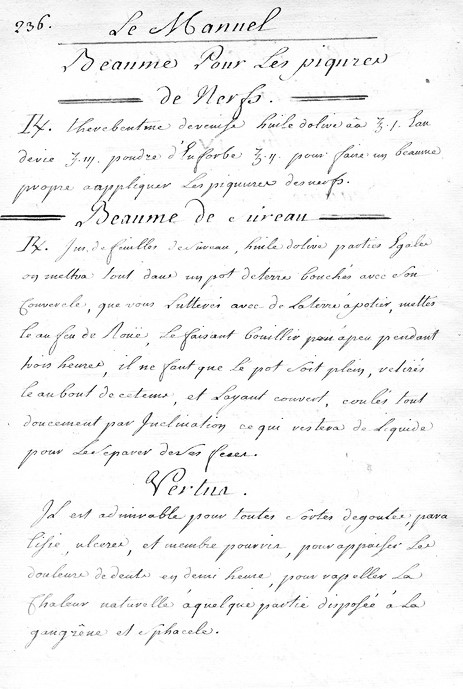 236. Le Manuel
Beaume Pour Les piqures
de Nerfs.
R. therebentine devenise huile dolive āā ʒ.j. Eau
devie ʒ.iij. poudre d'Euforbe ʒ.ij. pour faire un beaume
propre a appliquer Les piqueures des nerfs.
Beaume de sureau
R. Jus de feuilles de sureau, huile dolive parties Egales
on mettra tout dans un pot deterre bouchés avec Son
Couvercle, que vous Lutterés avec de Laterre apotier, mettés
le au feu de Roüe, Le faisant boüillir peu àpeu pendant
trois heures, il ne faut que Le pot soit plein, retirés
le aubout de cetems, et Layant couvert, coulés tout
doucement par Jnclination ce qui restera de Liquide
pour Le Separer de ses feces.
Vertus.
Jl est admirable pour toutes sortes degoutes, para
lisie, ulceres, et membre pourris, pour appaiser Les
douleurs dedents en demi heure, pour rapeller La
Chaleur naturelle à quelque partie disposée à La
gangrêne et sphacele.